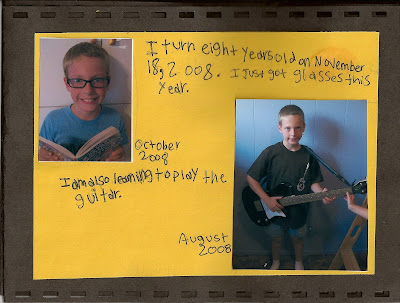 I turn eight years old on November
18, 2008. I just got glasses this
year.
October
2008
I am also learning to play the
guitar.
August
2008